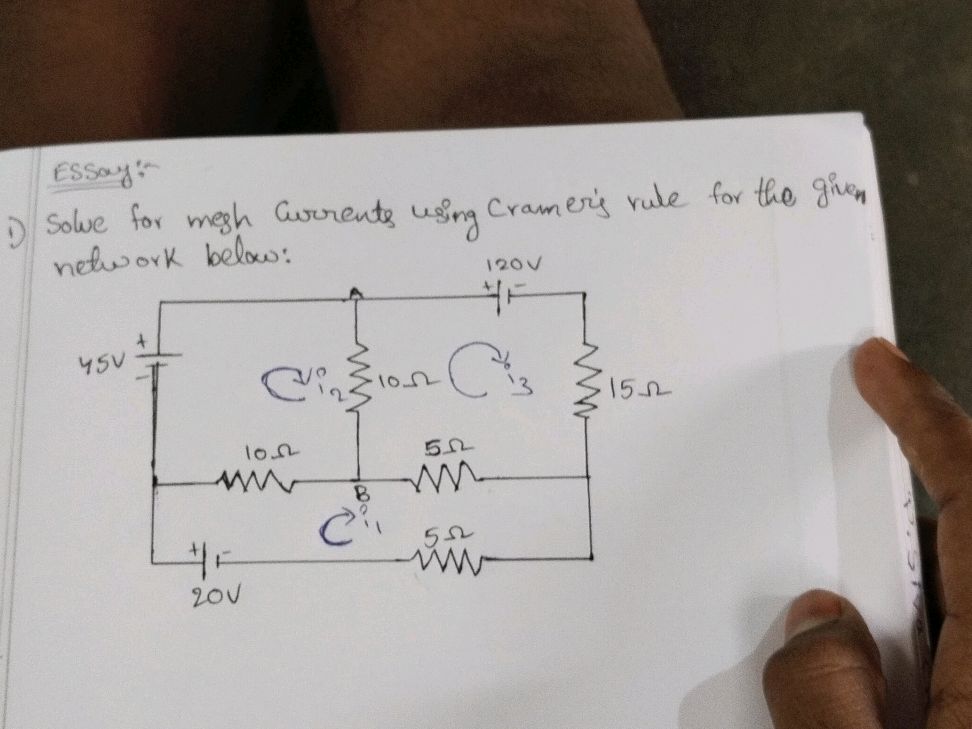 ESSay:-
1) Solve for mesh Currents using Cramer's rule for the given
network below:
120V
+ -
A
+
45V
-
i2
10Ω
i3
15Ω
10Ω
5Ω
B
i1
5Ω
+ -
20V